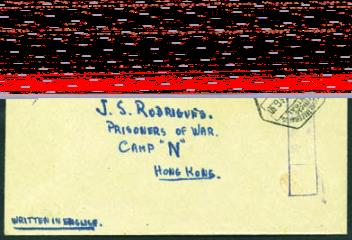 J. S. RODRIGUES.
PRISONERS OF WAR.
CAMP "N"
HONG KONG.
WRITTEN IN ENGLISH.